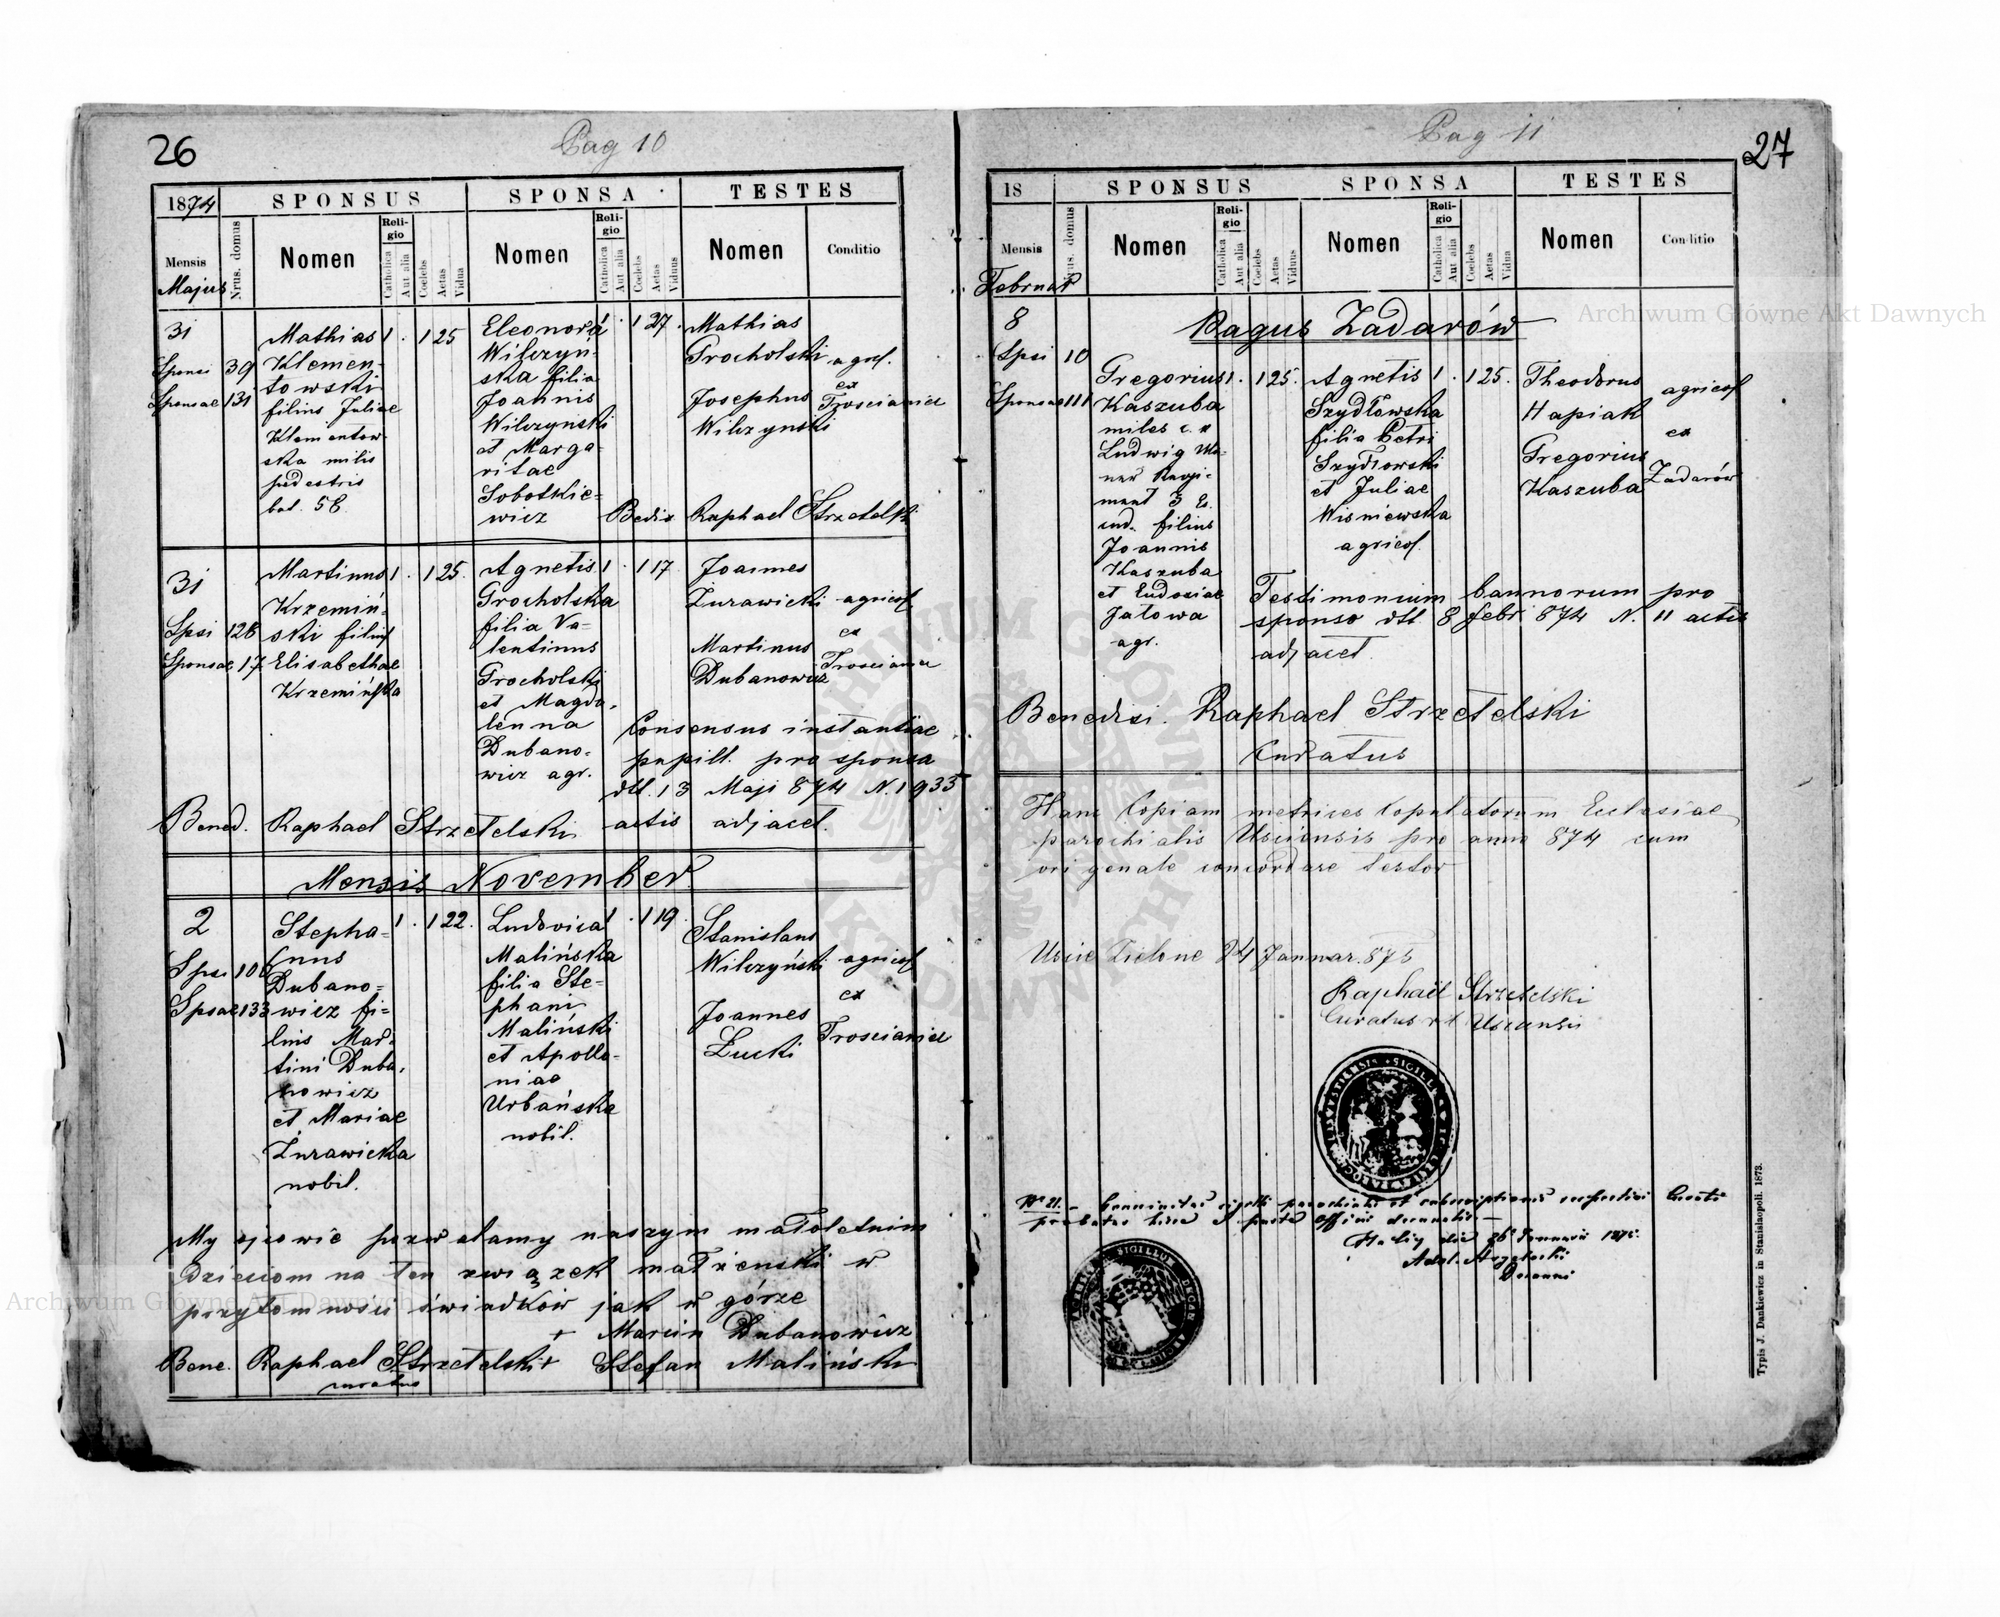 26
Pag 10
1874
SPONSUS
SPONSA
TESTES
Mensis
Majus
Nrus. domus
Nomen
Religio
Catholica
Aut alia
Coelebs
Aetas
Vidua
Nomen
Religio
Catholica
Aut alia
Coelebs
Aetas
Viduus
Nomen
Conditio
31
Sponsi 39
Sponsae 131
Mathias 1 . 1 25
Klemen-
towski
filius Juliae
Klementow
ska milis
pedestris
bat. 58
Eleonora . 1 27.
Wilczyń-
ska filia
Joannis
Wilczynski
et Marga-
ritae
Sobotkie-
wicz
Mathias
Grocholski
Josephus
Wilczynski
agric.
ex
Troscianica
Bedix Raphael Strzetelski
31
Spsi 128
Sponsae 17
Martinus 1 . 1 25.
Krzemiń-
ski filius
Elisabethae
Krzemińska
Agnetis 1 . 1 17
Grocholska
filia Va-
lentinus
Grocholski
et Magda-
lenna
Dubano-
wicz agr.
Joannes
Zurawicki
Martinus
Dubanowicz
agricol
ex
Troscianica
Consensus instantiae
pupill. pro sponsa
dtt. 13 Maji 874 N. 1935
actis adjacet.
Bened. Raphael Strzetelski
Mensis November
2
Spsi 100
Spsae 133
Stepha- 1 . 1 22.
nus
Dubano-
wicz fi-
lius Mar-
tini Duba-
nowicz
et Mariae
Zurawicka
nobil.
Ludovica 1 . 1 19.
Malińska
filia Ste-
phani
Maliński
et Apollo-
niae
Urbańska
nobil.
Stanislaus
Wilczyński
Joannes
Lucki
agricol
ex
Troscianica
My ojcowie pozwalamy naszym małoletnim
dzieciom na ten związek małżenski w
przytomnosci świadków jak w górze
+ Marcin Dubanowicz
Bene. Raphael Strzetelski + Stefan Maliński
curatus
Pag 11
27
18
SPONSUS
SPONSA
TESTES
Mensis
Februar
Nrus. domus
Nomen
Religio
Catholica
Aut alia
Coelebs
Aetas
Viduus
Nomen
Religio
Catholica
Aut alia
Coelebs
Aetas
Vidua
Nomen
Conditio
8
Pagus Zadarów
Spsi 10
Sponsae 111
Gregorius 1 . 1 25.
Kaszuba
miles c. r
Ludwig
Regi-
ment
filius
Joannis
Kaszuba
et Eudosiae
Jatowa
agr.
Agnetis 1 . 1 25.
Szydłowska
filia Petri
Szydłowski
et Juliae
Wisniewska
agricol.
Theodorus
Hapiak
Gregorius
Kaszuba
agricol
ex
Zadarów
Testimonium bannorum pro
sponso dtt 8 febr 874 N. 11 actis
adjacet.
Benedixi. Raphael Strzetelski
Curatus
Hanc Copiam metrices Copulatorum Eclesiae
parochialis Usciensis pro anno 874 cum
origenale concordare testor
Uscie Zielone 24 Januar. 875
Raphaël Strzetelski
Curatus Usciensis
Nr 21.
Decanus
Typis J. Dankiewicz in Stanislaopoli. 1873.
Archiwum Główne Akt Dawnych
Archiwum Główne Akt Dawnych
ARCHIWUM GŁÓWNE AKT DAWNYCH